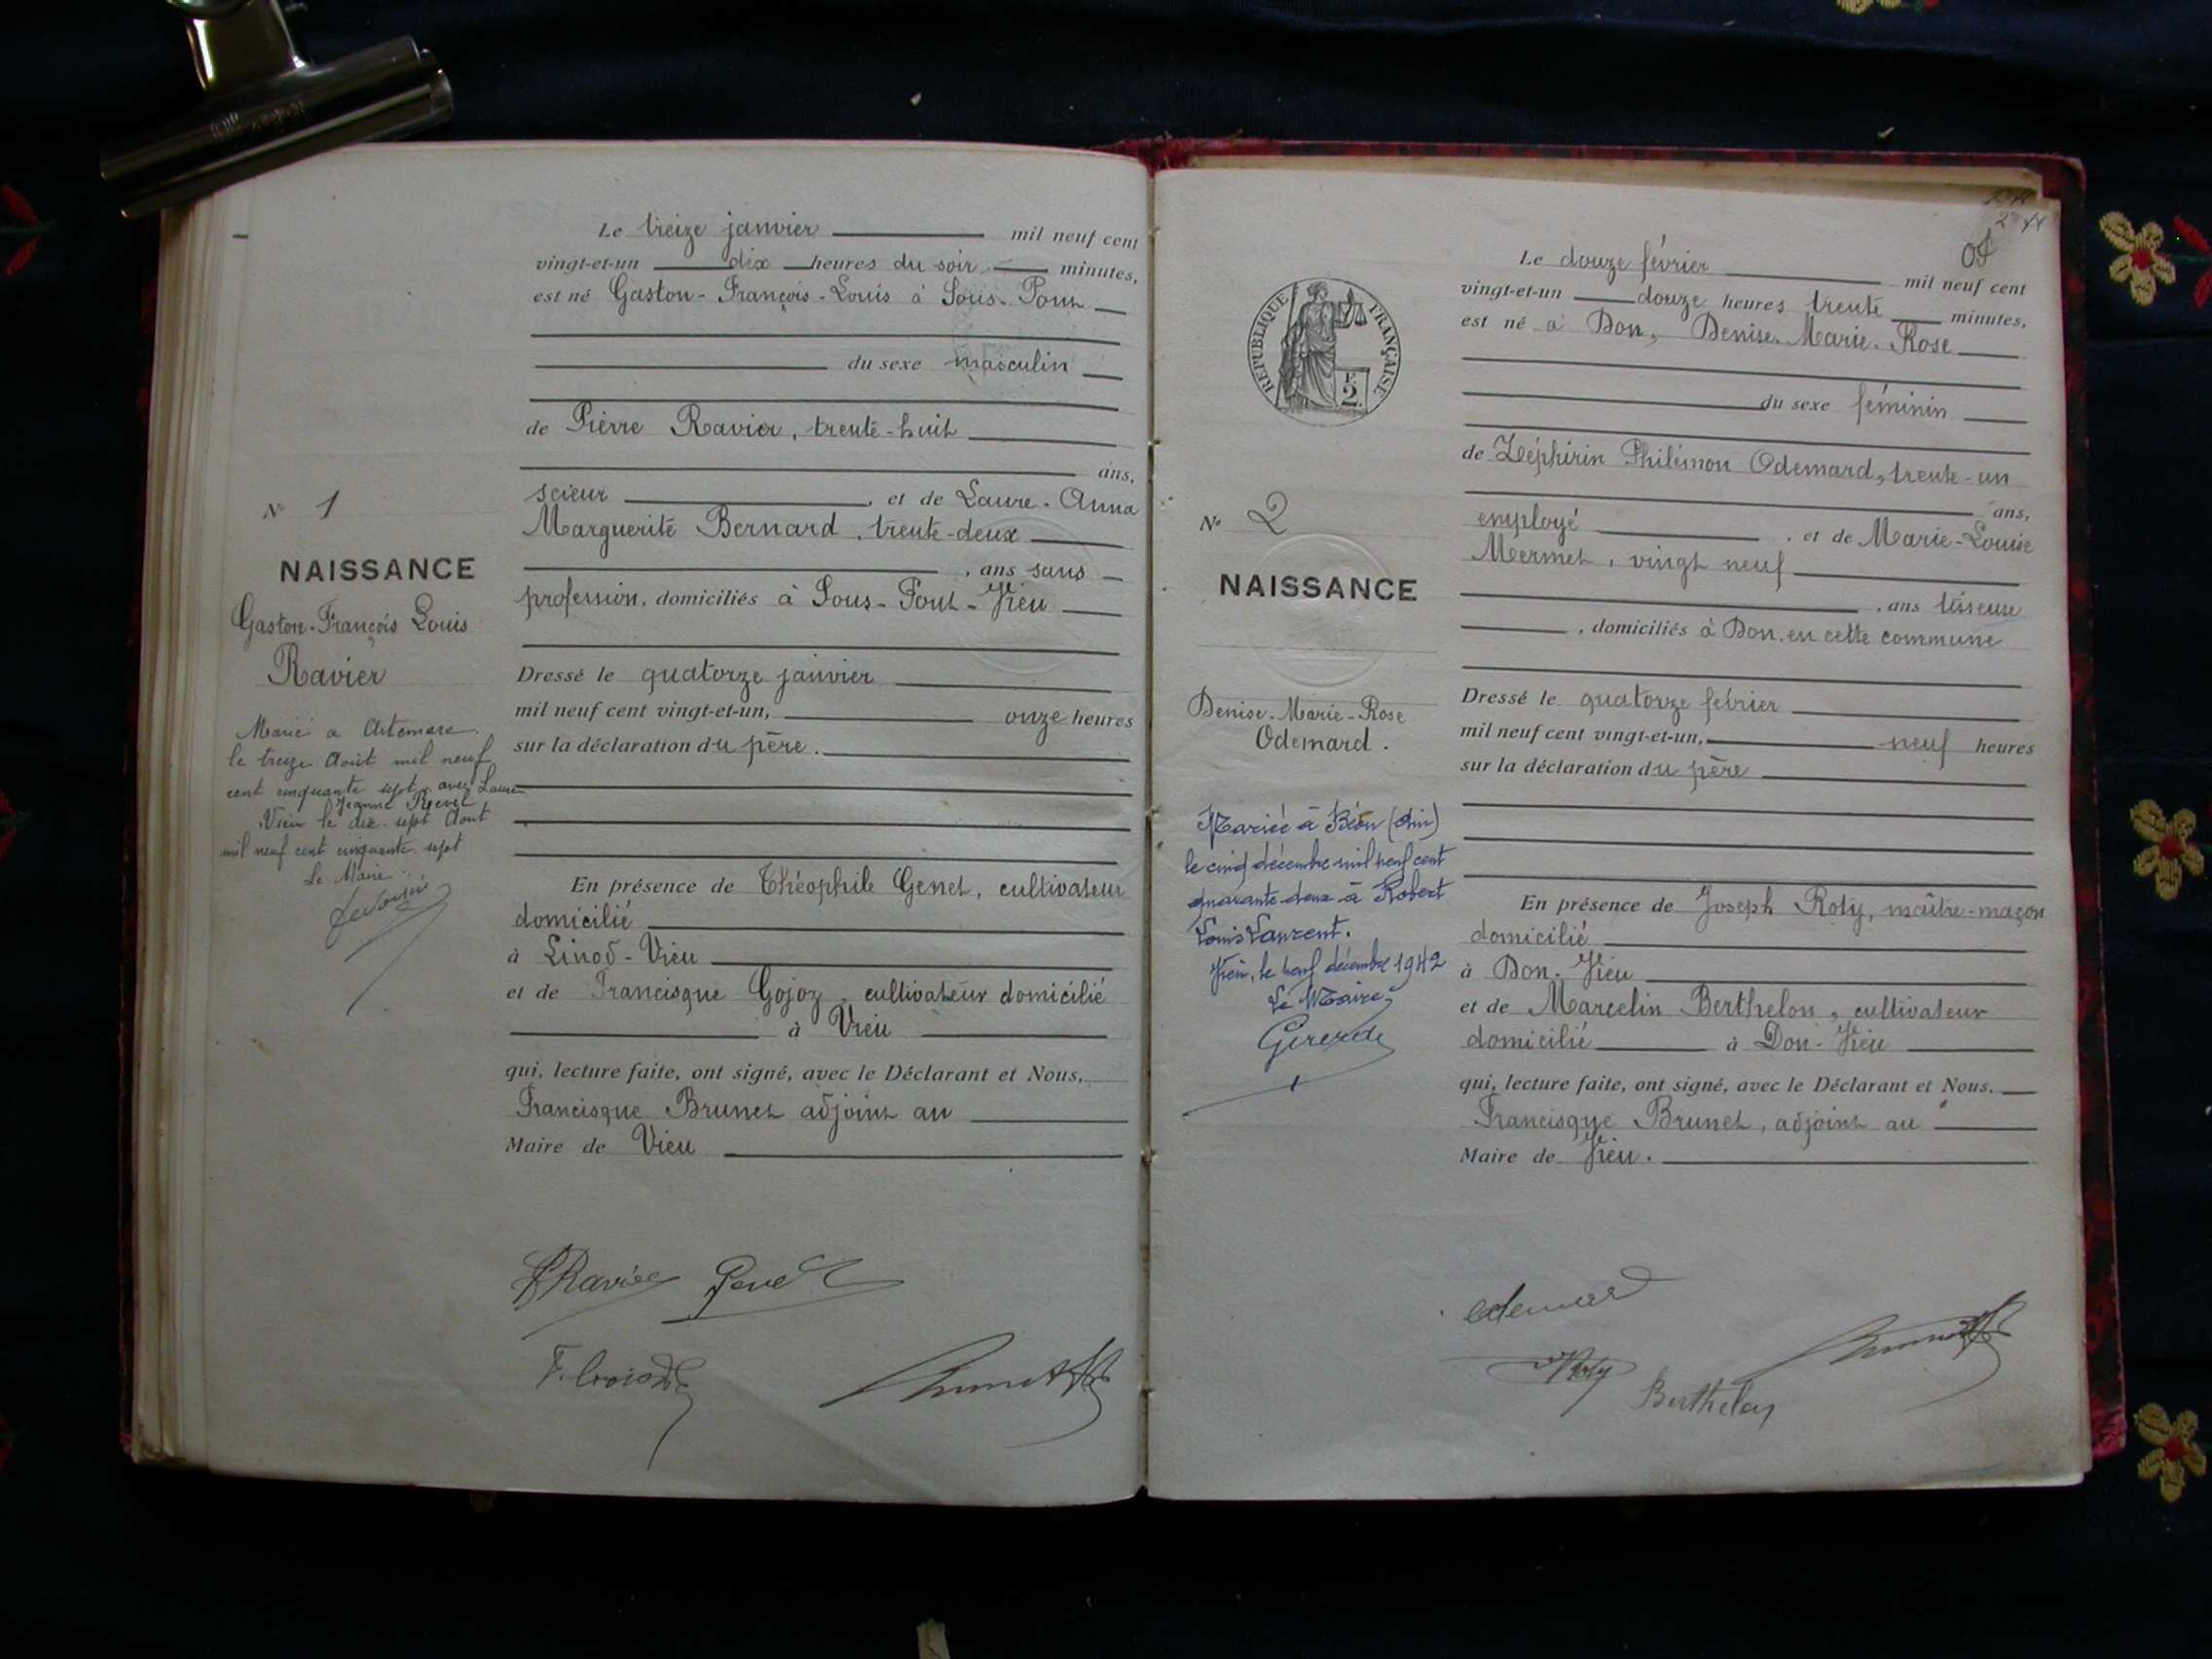 Le treize janvier mil neuf cent
vingt-et-un dix heures du soir minutes,
est né Gaston-François-Louis à Sous-Pont
du sexe masculin
de Pierre Ravier, trente-huit
ans,
scieur, et de Laure-Anna
Marguerite Bernard, trente-deux
, ans sans
profession, domiciliés à Sous-Pont-Vieu
Dressé le quatorze janvier
mil neuf cent vingt-et-un, onze heures
sur la déclaration du père.
En présence de Théophile Genet, cultivateur
domicilié
à Linod-Vieu
et de Francisque Gojoz, cultivateur domicilié
à Vieu
qui, lecture faite, ont signé, avec le Déclarant et Nous,
Francisque Brunet adjoint au
Maire de Vieu
N° 1
NAISSANCE
Gaston-François Louis
Ravier
Marié a Artemare
le treize Août mil neuf
cent cinquante sept avec Laure
Jeanne
Vieu le dix-sept Aout
mil neuf cent cinquante-sept
Le Maire
PRavier Genet
Brunet
Le douze février mil neuf cent
vingt-et-un douze heures trente minutes,
est né à Don, Denise-Marie-Rose
du sexe féminin
de Zéphirin Philémon Odemard, trente-un
ans,
employé, et de Marie-Louise
Mermet, vingt neuf
, ans tisseuse
, domiciliés à Don, en cette commune
Dressé le quatorze février
mil neuf cent vingt-et-un, neuf heures
sur la déclaration du père
En présence de Joseph Roty, maître-maçon
domicilié
à Don-Vieu
et de Marcelin Berthelon, cultivateur
domicilié à Don-Vieu
qui, lecture faite, ont signé, avec le Déclarant et Nous.
Francisque Brunet, adjoint au
Maire de Vieu.
RÉPUBLIQUE FRANÇAISE
F. 2.
N° 2
NAISSANCE
Denise-Marie-Rose
Odemard.
Mariée à Béon (Ain)
le cinq décembre mil neuf cent
quarante-deux à Robert
Louis Laurent.
Vieu, le neuf décembre 1942
Le Maire,
Odemard
Roty
Berthelon
Brunet